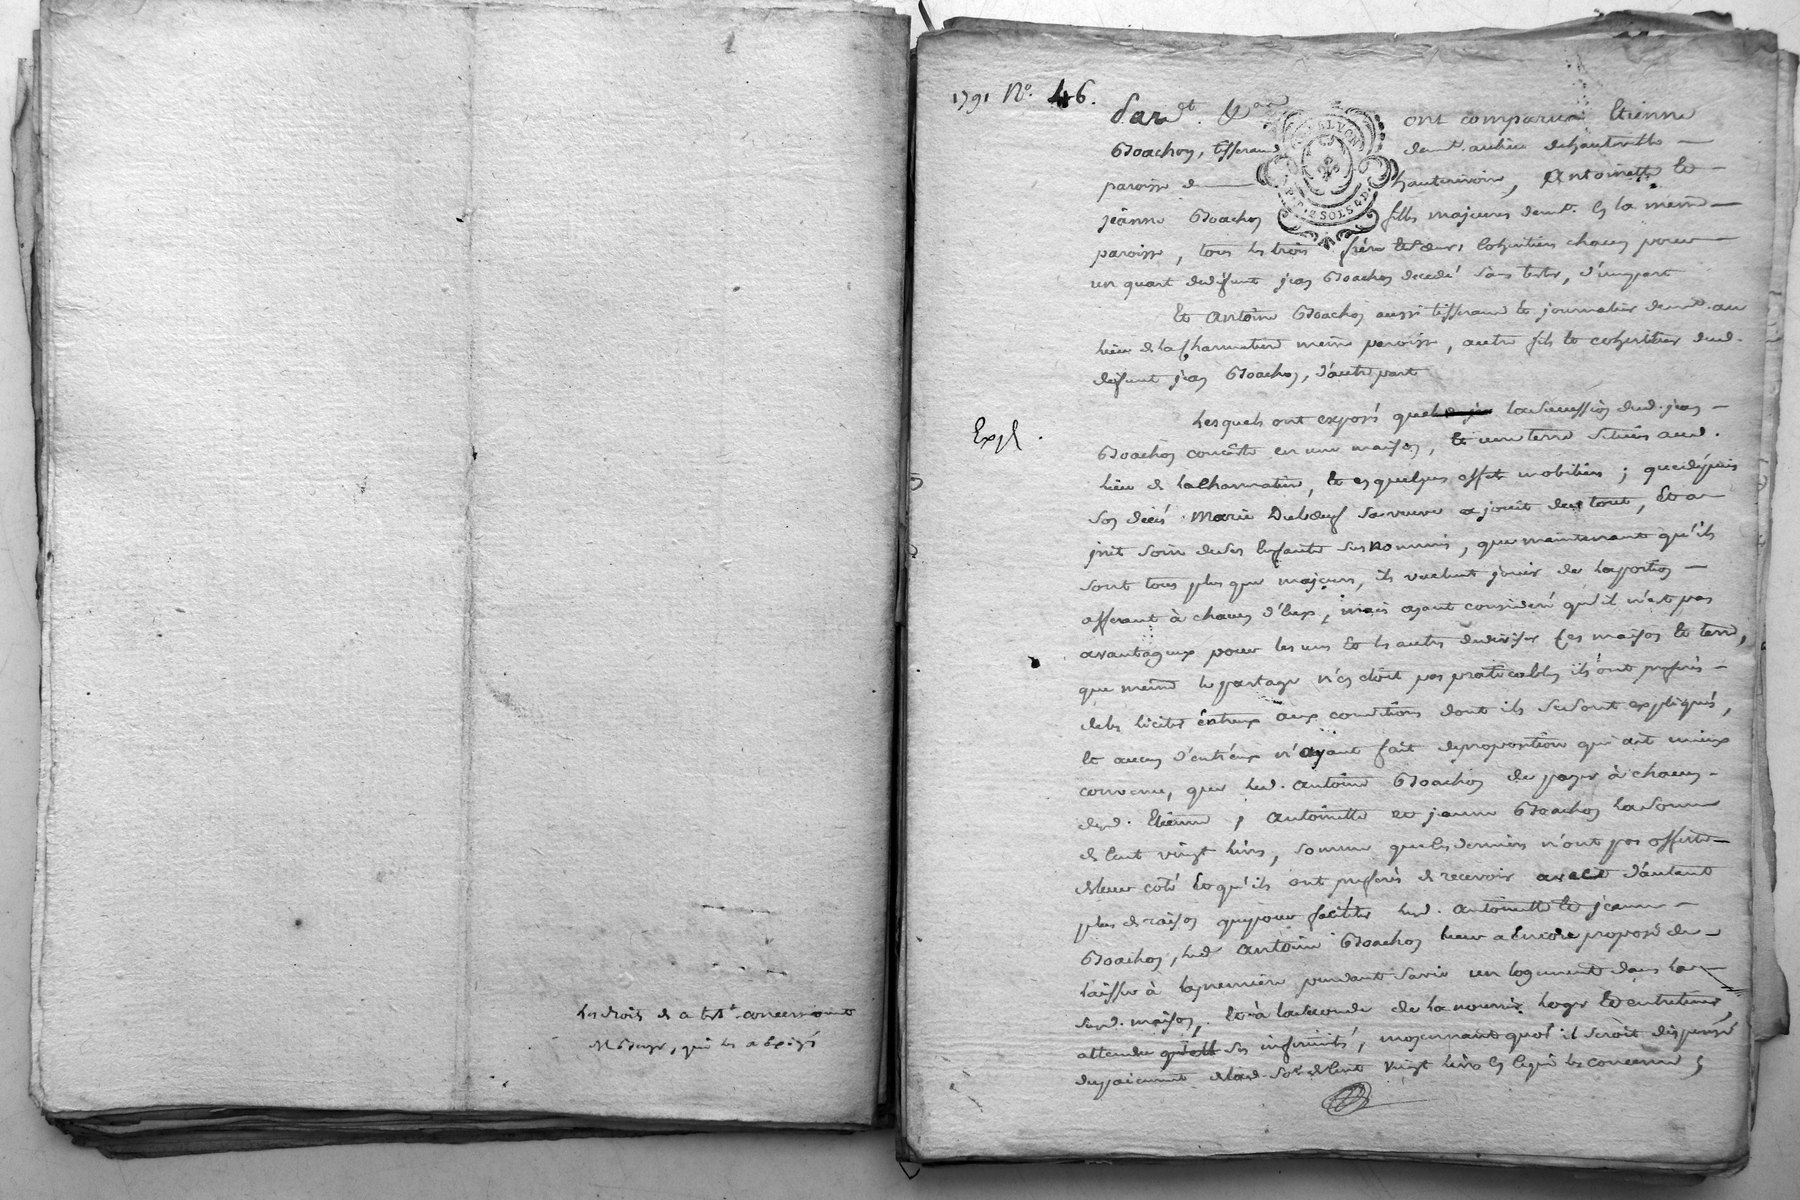 Les droits de ce test.t concernoient
M. , qui les a exigés
1791 N.o 46.
Pard.t &.a ont comparu Etienne
Goachon, tisserand dem.t au lieu de hauteville
paroisse de hauterivoire, Antoinette et
jeanne Goachon filles majeures dem.t en la meme
paroisse, tous les trois frère et sœurs, cohéritiers chacun pour
un quart de defunt jean Goachon decedé sans tester, d'une part
Et Antoine Goachon aussi tisserand et journalier dem.t au
lieu de la Charmatiere meme paroisse, autre fils et cohéritier dud.
defunt jean Goachon, d'autre part
Expé.
Lesquels ont exposé que la succession dud. jean
Goachon consiste en une maison, et une terre situées aud.
lieu de la Charmatiere, et en quelques effets mobiliers ; que depuis
son décès Marie Duboeuf sa veuve a jouit du tout, et a
prit soin de ses enfants susnommés, que maintenant qu'ils
sont tous plus que majeurs, ils veulent jouir de la portion
afferant à chacun d'eux, mais ayant consideré qu'il n'est pas
avantageux pour les uns et les autres de diviser ces maison et terre,
que meme le partage n'en étoit pas praticable, ils ont preferés
de les liciter entreux aux conditions dont ils se sont expliqués,
et aucun d'entreux n'ayant fait de proposition qui ait mieux
convenu, que led. Antoine Goachon de payer à chacun
desd. Etienne, Antoinette et jeanne Goachon la somme
de Cent vingt livres, somme que les derniers n'ont pas offerte
de leur coté et qu'ils ont preferés de recevoir avec d'autant
plus de raison que pour faciliter lesd. Antoinette et jeanne
Goachon, led. Antoine Goachon leur a encore proposé de
laisser à la premiere pendant sa vie un logement dans la
susd. maison, et à la seconde de la nourrir loger et entretenir
attendu ses infirmités, moyennant quoi il seroit dispensé
du paiement de lad. so.e de Cent vingt livres en ce qui les concerne ;